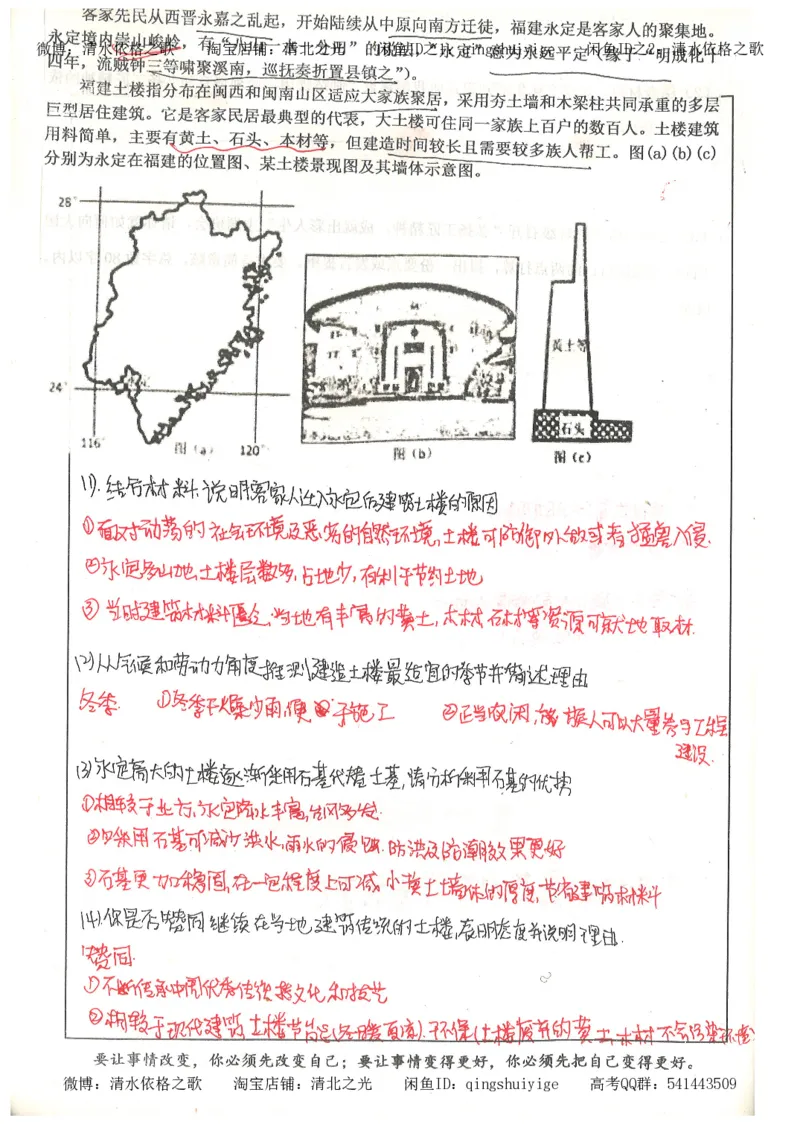 客家先民从西晋永嘉之乱起，开始陆续从中原向南方迁徒，福建永定是客家人的聚集地。
永定境内崇山峻岭，有“八山一水一分田”的说法。“永定”意为永远平定（缘于“明成化十
微博：清水依格之歌 淘宝店铺：清北之光 闲鱼ID之1：qingshuiyige 闲鱼ID之2：清水依格之歌
四年，流贼钟三等啸聚溪南，巡抚奏折置县镇之”）。
福建土楼指分布在闽西和闽南山区适应大家族聚居，采用夯土墙和木梁柱共同承重的多层
巨型居住建筑。它是客家民居最典型的代表，大土楼可住同一家族上百户的数百人。土楼建筑
用料简单，主要有黄土、石头、本材等，但建造时间较长且需要较多族人帮工。图(a)(b)(c)
分别为永定在福建的位置图、某土楼景现图及其墙体示意图。
28°
24°
116°
120°
图(a)
图(b)
黄土等
石头
图(c)
(1).结合材料,说明客家人迁入永定后建筑土楼的原因
①面对动荡的社会环境及恶劣的自然环境,土楼可防御外敌或者猛兽入侵.
②永定多山地,土楼层数多,占地少,有利于节约土地
③当时建筑材料匮乏,当地有丰富的黄土,木材,石材等资源可就地取材.
(2)从气候和劳动力角度推测建造土楼最适宜的季节并简述理由
冬季. ①冬季干燥少雨,便于施工 ②正当农闲,族人可以大量参与工程
建设.
(3)永定高大的土楼逐渐使用石基代替土基,请分析利用石基的优势
①相较于北方,永定降水丰富,台风多发.
②采用石基可减少洪水,雨水的侵蚀.防洪及防潮效果更好
③石基更加稳固,在一定程度上可减小黄土墙体的厚度,节省建筑材料
(4)你是否赞同继续在当地建筑传统的土楼,表明态度并说明理由.
赞同.
①不断传承中国优秀传统文化和技艺
②相较于现代建筑,土楼节能(冬暖夏凉).环保(土楼废弃的黄土,木材不会污染环境)
要让事情改变，你必须先改变自己；要让事情变得更好，你必须先把自己变得更好。
微博：清水依格之歌 淘宝店铺：清北之光 闲鱼ID：qingshuiyige 高考QQ群：541443509